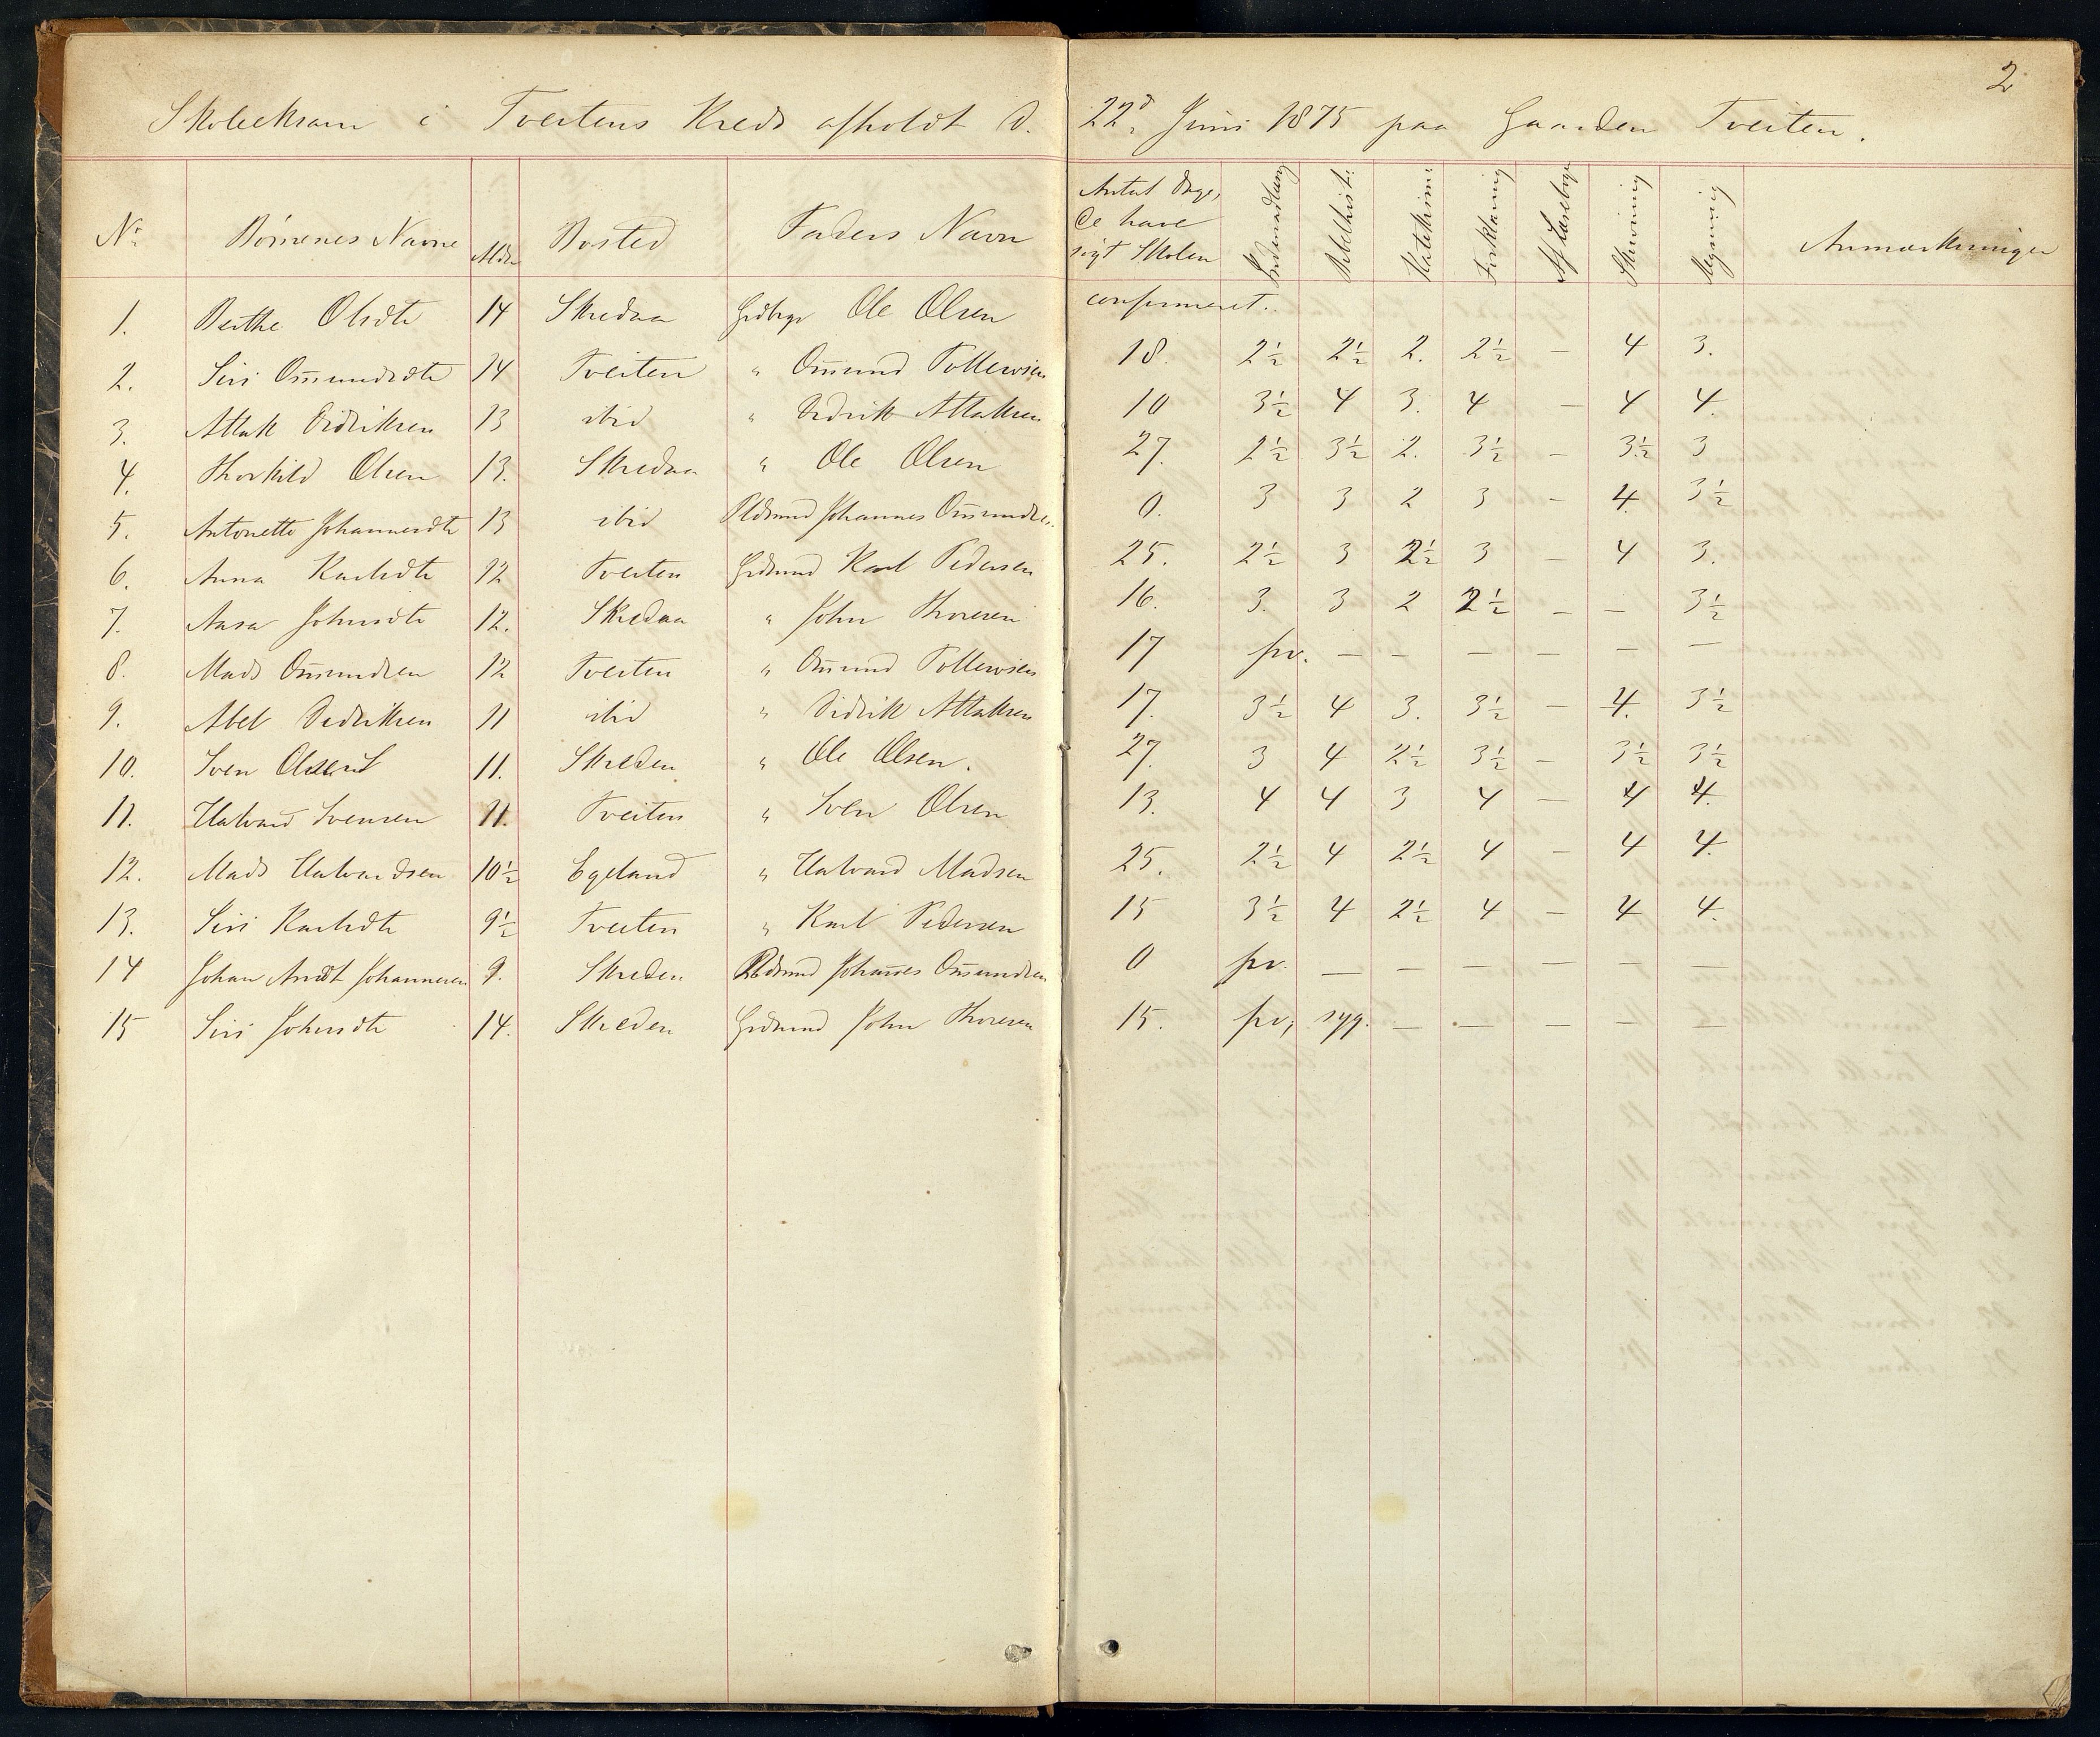 2
Skoleeksam i Tveitens Kreds afholdt d. 22d Juni 1875 paa Gaarden Tveiten.
No Børnenes Navne Alder Bosted Faders Navn Antal Dage, de have søgt Skolen Indenadlæsning Bibelhist: Katekism: Forklaring Af Læsebogen Skrivning Regning Anmærkninger
1. Berthe Olsdtr 14 Skredaa Grdbrgr Ole Olsen confirmeret.
2. Siri Om̄undsdtr 14 Tveiten " Om̄und Tollevsen 18. 2½ 2½ 2. 2½ — 4 3.
3. Attak Didriksen 13 ibid " Didrik Attaksen 10 3½ 4 3. 4 — 4 4.
4. Thorkild Olsen 13. Skredaa " Ole Olsen 27. 2½ 3½ 2. 3½ — 3½ 3
5. Antonette Johannesdtr 13 ibid Pldsmd Johannes Om̄undsen 0. 3 3 2 3 — 4. 3½
6. Anna Karlsdtr 12 Tveiten Grdmd Karl Pedersen 25. 2½ 3 2½ 3 — 4 3.
7. Aasa Johnsdtr 12. Skredaa " John Thorsen 16. 3. 3 2 2½ — — 3½
8. Mads Om̄undsen 12 Tveiten " Om̄und Tollevsen 17 frv. — — — — — —
9. Abel Didriksen 11 ibid " Didrik Attaksen 17. 3½ 4 3. 3½ — 4. 3½
10. Sven Olsen 11. Skreden " Ole Olsen. 27. 3 4 2½ 3½ — 3½ 3½
11. Halvard Svensen 11. Tveiten " Sven Olsen 13. 4 4 3 4 — 4 4.
12. Mads Halvardsen 10½ Egeland " Halvard Madsen 25. 2½ 4 2½ 4 — 4 4.
13. Siri Karlsdtr 9½ Tveiten " Karl Pedersen 15 3½ 4 2½ 4 — 4 4.
14 Johan Johannesen 9. Skreden Pldsmd Johan̄es Om̄undsen 0 frv. — — — — — —
15 Siri Johnsdtr 14. Skreden Grdmd John Thorsen 15. frv; syg. — — — — —